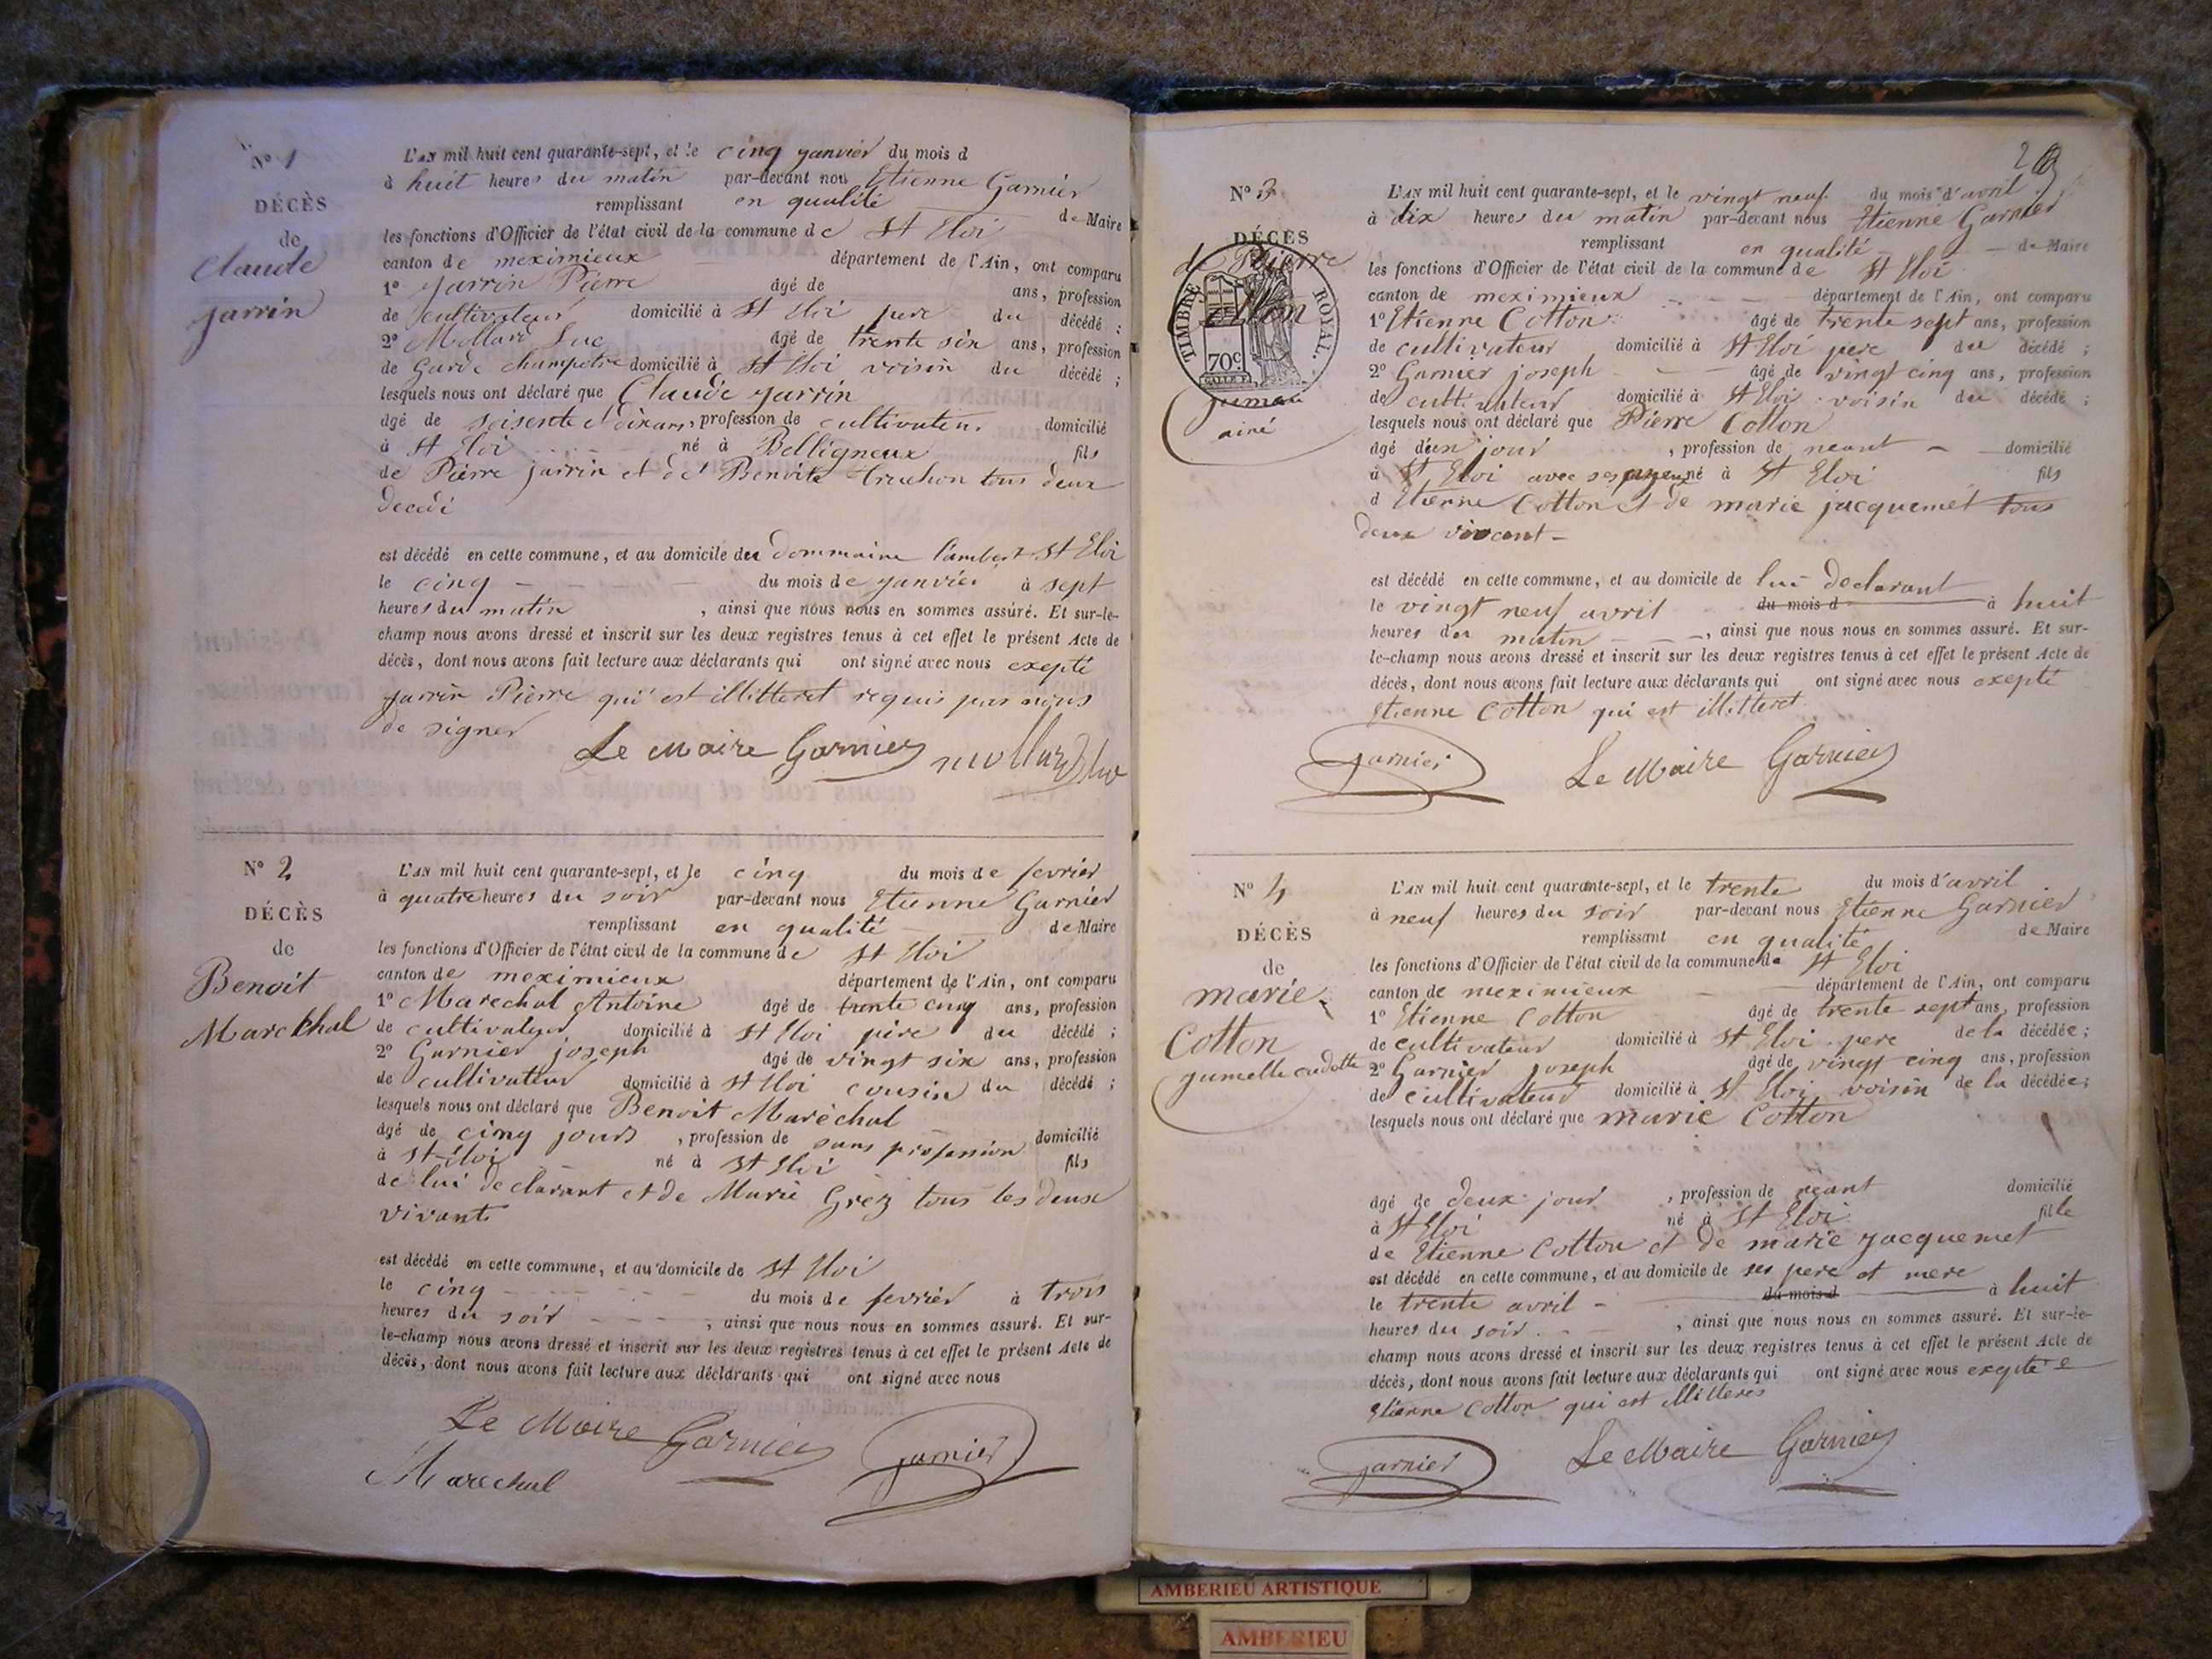 N° 1
DÉCÈS
de
Claude
Jarrin
L'AN mil huit cent quarante-sept, et le cinq janvier du mois d
à huit heures du matin par-devant nou Etienne Garnier
remplissant en qualité de Maire
les fonctions d'Officier de l'état civil de la commune de St Eloi
canton de meximieux département de l'Ain, ont comparu
1° Jarrin Pierre âgé de ans, profession
de cultivateur domicilié à St Eloi pere du décédé ;
2° Mollard Luc âgé de trente six ans, profession
de Garde champetre domicilié à St Eloi voisin du décédé ;
lesquels nous ont déclaré que Claude Jarrin
âgé de soisente et dix ans, profession de cultivateur domicilié
à St Eloi né à Belligneux fils
de Pierre jarrin et de Benoite truchon tous deux
decedi
est décédé en cette commune, et au domicile du dommaine Cambert St Eloi
le cinq du mois de janvier à sept
heures du matin , ainsi que nous nous en sommes assuré. Et sur-le-
champ nous avons dressé et inscrit sur les deux registres tenus à cet effet le présent Acte de
décès, dont nous avons fait lecture aux déclarants qui ont signé avec nous exepté
Jarrin Pierre qui est illitteret requis par nous
de signer
Le Maire Garnier mollard luc
N° 2
DÉCÈS
de
Benoit
Marechal
L'AN mil huit cent quarante-sept, et le cinq du mois de fevrier
à quatre heures du soir par-devant nous Etienne Garnier
remplissant en qualité de Maire
les fonctions d'Officier de l'état civil de la commune de St Eloi
canton de meximieux département de l'Ain, ont comparu
1° Marechal Antoine âgé de trente cinq ans, profession
de cultivateur domicilié à St Eloi père du décédé ;
2° Garnier joseph âgé de vingt six ans, profession
de cultivateur domicilié à St Eloi cousin du décédé ;
lesquels nous ont déclaré que Benoit Maréchal
âgé de cinq jours , profession de sans profession domicilié
à St Eloi né à St Eloi fils
de lui declarant et de Marie Grèz tous les deux
vivants
est décédé en cette commune, et au domicile de St Eloi
le cinq du mois de fevrier à trois
heures du soir , ainsi que nous nous en sommes assuré. Et sur-
le-champ nous avons dressé et inscrit sur les deux registres tenus à cet effet le présent Acte de
décès, dont nous avons fait lecture aux déclarants qui ont signé avec nous
Le Maire Garnier Garnier
Marechal
N° 3
DÉCÈS
de Pierre
Cotton
TIMBRE ROYAL.
70c.
jumau
ainé
L'AN mil huit cent quarante-sept, et le vingt neuf du mois d'avril
à dix heures du matin par-devant nous Etienne Garnier
remplissant en qualité de Maire
les fonctions d'Officier de l'état civil de la commune de St Eloi
canton de meximieux département de l'Ain, ont comparu
1° Etienne Cotton âgé de trente sept ans, profession
de cultivateur domicilié à St Eloi pere du décédé ;
2° Garnier joseph âgé de vingt cinq ans, profession
de cultivateur domicilié à St Eloi voisin du décédé ;
lesquels nous ont déclaré que Pierre Cotton
âgé d'un jour , profession de neant domicilié
à St Eloi avec ses né à St Eloi fils
d Etienne Cotton et de marie jacquemet tous
deux vivant
est décédé en cette commune, et au domicile de lui declarant
le vingt neuf avril du mois d à huit
heures du matin , ainsi que nous nous en sommes assuré. Et sur-
le-champ nous avons dressé et inscrit sur les deux registres tenus à cet effet le présent Acte de
décès, dont nous avons fait lecture aux déclarants qui ont signé avec nous exepté
Etienne Cotton qui est illitteret
Garnier Le Maire Garnier
N° 4
DÉCÈS
de
marie
Cotton
jumelle cadette
L'AN mil huit cent quarante-sept, et le trente du mois d'avril
à neuf heures du soir par-devant nous Etienne Garnier
remplissant en qualité de Maire
les fonctions d'Officier de l'état civil de la commune de St Eloi
canton de meximieux département de l'Ain, ont comparu
1° Etienne Cotton âgé de trente sept ans, profession
de cultivateur domicilié à St Eloi pere de la décédée ;
2° Garnier joseph âgé de vingt cinq ans, profession
de cultivateur domicilié à St Eloi voisin de la décédée ;
lesquels nous ont déclaré que marie Cotton
âgé de deux jour , profession de neant domicilié
à St Eloi né à St Eloi fille
de Etienne Cotton et de marie jacquemet
est décédé en cette commune, et au domicile de ses pere et mere
le trente avril du mois d à huit
heures du soir , ainsi que nous nous en sommes assuré. Et sur-le-
champ nous avons dressé et inscrit sur les deux registres tenus à cet effet le présent Acte de
décès, dont nous avons fait lecture aux déclarants qui ont signé avec nous exepté
Etienne Cotton qui est illiteres
Garnier Le Maire Garnier
AMBERIEU ARTISTIQUE
AMBERIEU